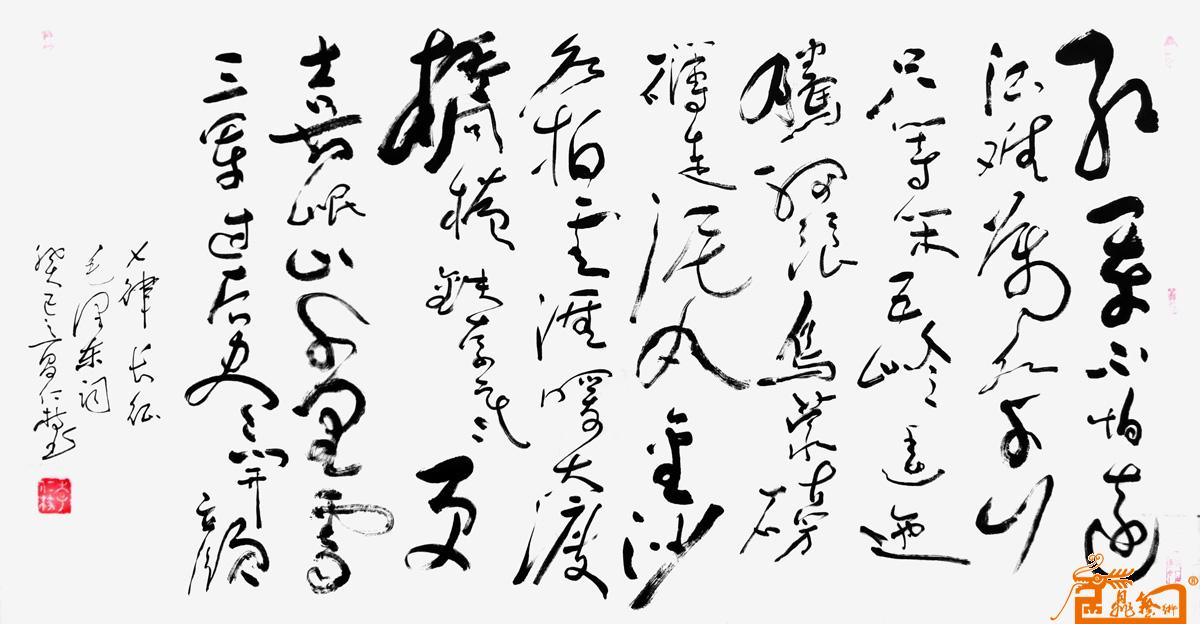 红军不怕远
征难万水千山
只等闲五岭逶迤
腾细浪乌蒙磅
礴走泥丸金沙
水拍云崖暖大渡
桥横铁索寒更
喜岷山千里雪
三军过后尽开颜
七律 长征
毛泽东词
癸巳之夏仁